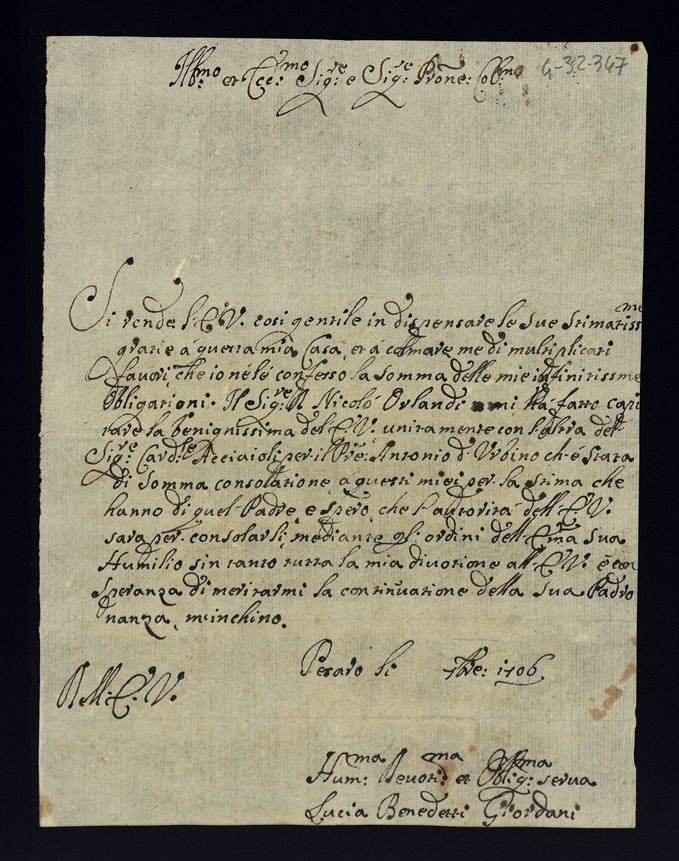 Ill:mo et Ecc:mo Sig:re e Sig:re Prone: Col:mo
G-32-347
Si rende l'E.V. cosi gentile in dispensare le sue stimatissme
gratie á questa mia Casa, et á colmare me di multiplicati
favori, che io né lé confesso la somma delle mie infinitissme
Obligationi. Il Sig:re D. Nicoló Orlandi mi há fatto capi
tare la benignissima dell'E.V. unitamente con l'altra del
Sig:re Card:le Acciaioli per il Pre: Antonio d'Urbino ch'é stata
di somma consolatione á questi miei per la stima che
hanno di quel Padre e spero che l'autorita dell'E.V.
sara per consolarli, mediante gl'ordini dell'Emã sua
Humilio sin tanto tutta la mia divotione all'E.V. e con
speranza di meritarmi la continuatione della sua Padro
nanza, m'inchino.
Pesaro li 7bre: 1706
Dell'E.V.
Hum:ma Devot:ma et Oblig:ma serva
Lucia Benedetti Giordani